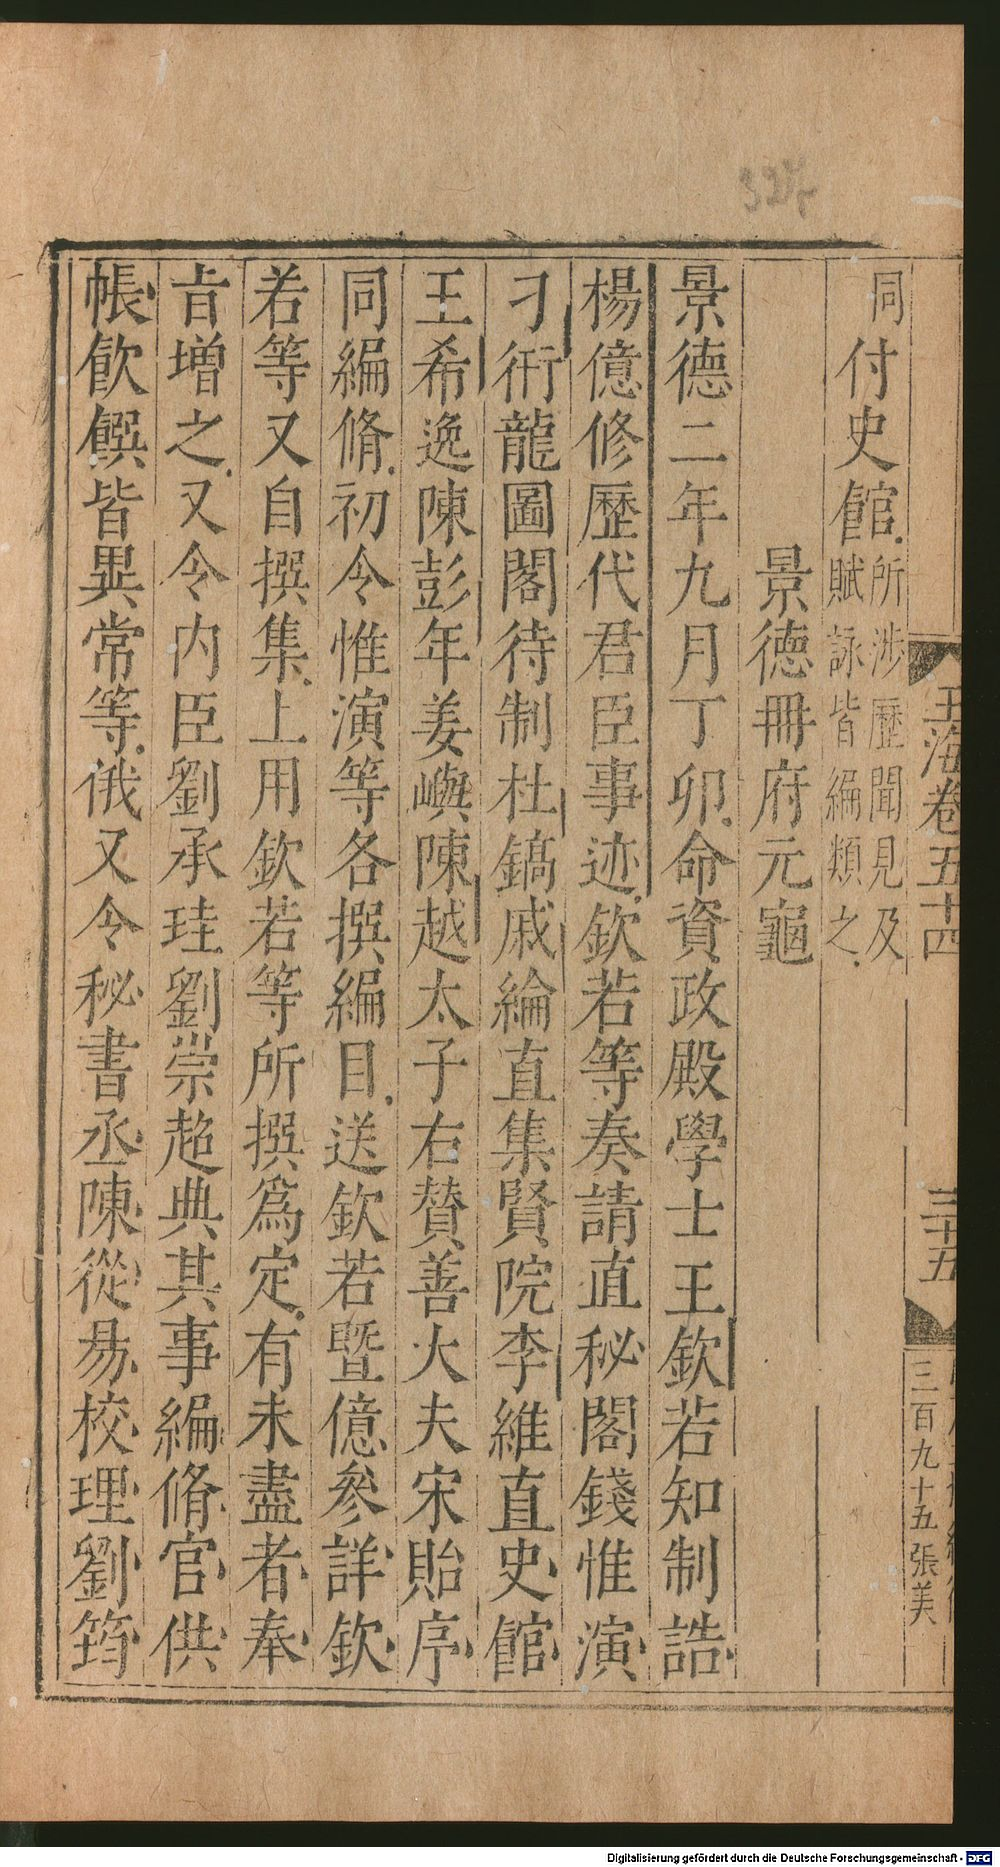 同付史館所涉歷聞見及
賦詠皆編類之
景德冊府元龜
景德二年九月丁卯命資政殿學士王欽若知制誥
楊億修歷代君臣事迹欽若等奏請直秘閣錢惟演
刁衎龍圖閣待制杜鎬戚綸直集賢院李維直史館
王希逸陳彭年姜嶼陳越太子右贊善大夫宋貽序
同編脩初令惟演等各撰編目送欽若暨億參詳欽
若等又自撰集上用欽若等所撰為定有未盡者奉
旨增之又令內臣劉承珪劉崇超典其事編脩官供
帳飲饌皆異常等俄又令秘書丞陳從易校理劉筠
玉海卷五十四
三十五
三百九十五 張美
Digitalisierung gefördert durch die Deutsche Forschungsgemeinschaft - DFG